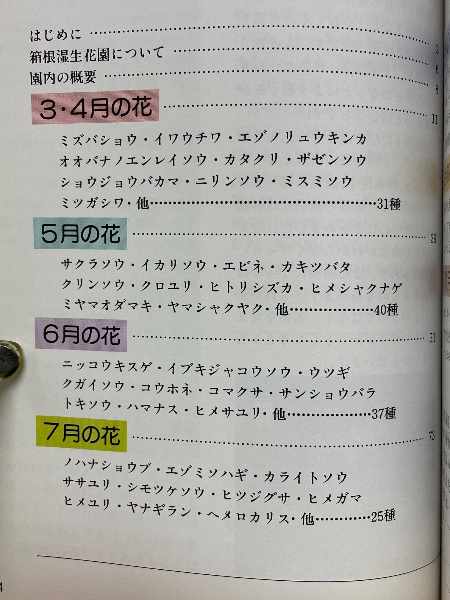 はじめに……………………………………3
箱根湿生花園について……………………6
園内の概要…………………………………9
3・4月の花………………………………11
ミズバショウ・イワウチワ・エゾノリュウキンカ
オオバナノエンレイソウ・カタクリ・ザゼンソウ
ショウジョウバカマ・ニリンソウ・ミスミソウ
ミツガシワ・他……………………………31種
5月の花……………………………………
サクラソウ・イカリソウ・エビネ・カキツバタ
クリンソウ・クロユリ・ヒトリシズカ・ヒメシャクナゲ
ミヤマオダマキ・ヤマシャクヤク・他……………40種
6月の花……………………………………51
ニッコウキスゲ・イブキジャコウソウ・ウツギ
クガイソウ・コウホネ・コマクサ・サンショウバラ
トキソウ・ハマナス・ヒメサユリ・他……………37種
7月の花……………………………………
ノハナショウブ・エゾミソハギ・カライトソウ
ササユリ・シモツケソウ・ヒツジグサ・ヒメガマ
ヒメユリ・ヤナギラン・ヘメロカリス・他…………25種
4